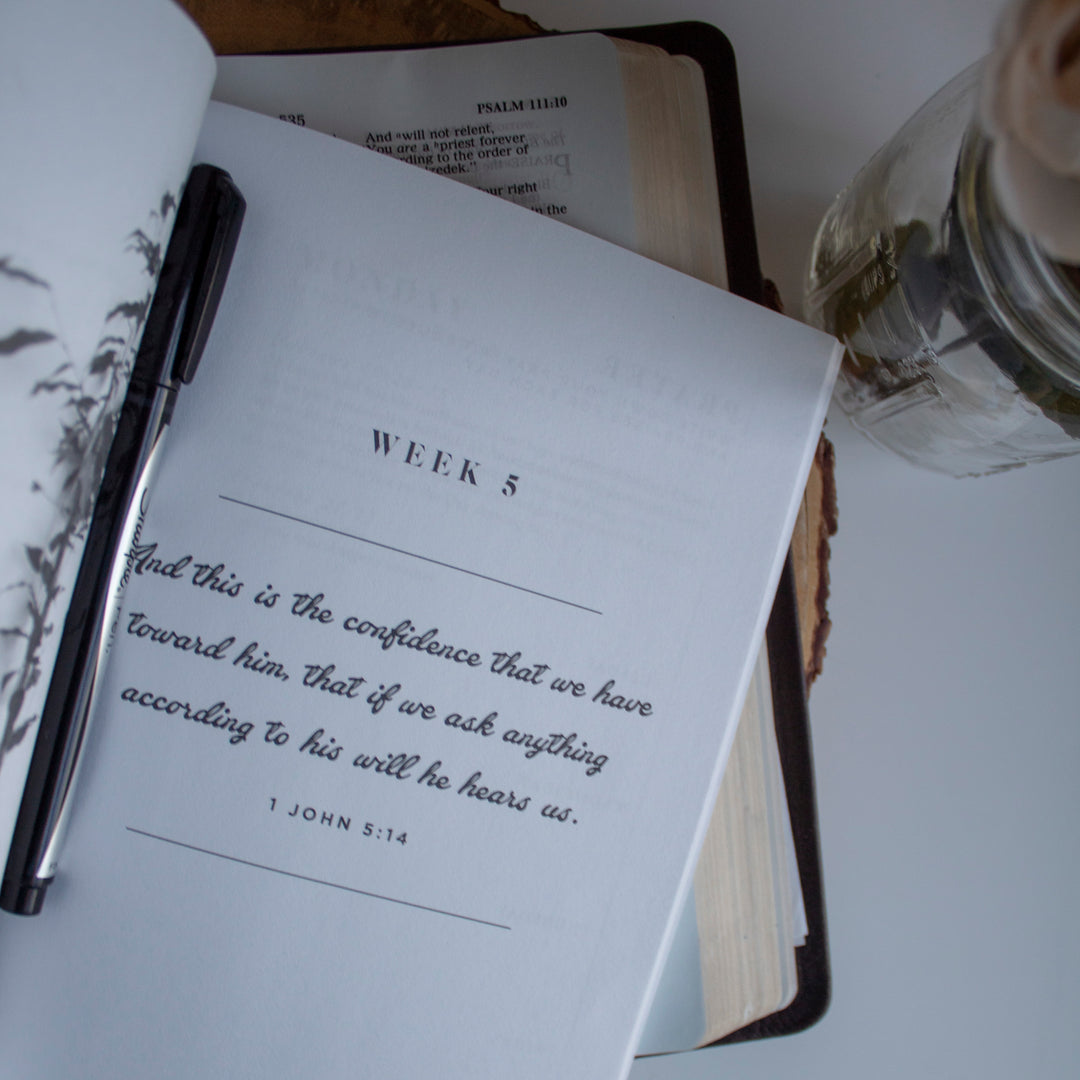 535 PSALM 111:10
And "will not relent,
You are a ʰpriest forever
rding to the order of
redek."
our right
in the
WEEK 5
And this is the confidence that we have
toward him, that if we ask anything
according to his will he hears us.
1 JOHN 5:14